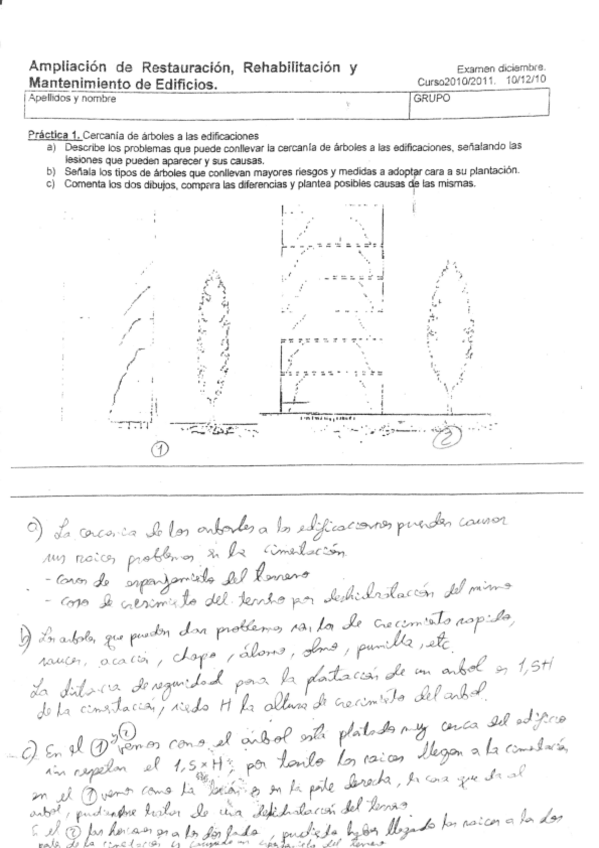 Ampliación de Restauración, Rehabilitación y
Mantenimiento de Edificios.
Examen diciembre.
Curso2010/2011. 10/12/10
Apellidos y nombre
GRUPO
Práctica 1. Cercanía de árboles a las edificaciones
a) Describe los problemas que puede conllevar la cercanía de árboles a las edificaciones, señalando las
lesiones que pueden aparecer y sus causas.
b) Señala los tipos de árboles que conllevan mayores riesgos y medidas a adoptar cara a su plantación.
c) Comenta los dos dibujos, compara las diferencias y plantea posibles causas de las mismas.
1
2
a) La cercania de los arboles a las edificaciones pueden causar
sus raices problemas en la cimentación.
- casos de esponjamiento del terreno
- caso de del terreno por deshidratación del mismo
b) Los arboles que pueden dar problemas los de crecimiento rapido,
sauces, acacias, chopo, álamo, olmo, , etc.
La distancia de seguridad para la plantación de un arbol es 1,5H
de la cimentación, siendo H la altura de crecimiento del arbol.
c) En el 1 y 2 vemos como el arbol está plantado muy cerca del edificio
sin respetar el 1,5xH, por tanto las raices llegan a la cimentación,
en el 1 vemos como la lesión es en la parte derecha, la cara que da al
arbol, pudiendose tratar de una deshidratación del terreno
E el 2 las a los dos lados, pudiendo haber llegado las raices a la dos
parte de la cimentación del terreno